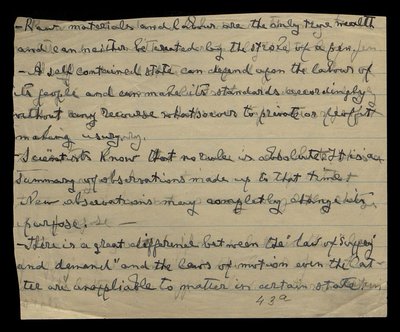 - Raw materials and labour are the only true wealth
and can neither be created by the stroke of a pen.
- A self contained state can depend upon the labour of
its people and can make its standards accordingly
without any recourse whatsoever to private or profit
making usury.
- Scientists know that no rule is absolute. It is a
summary of observations made up to that time.
New observations may completely change its
purpose.
- There is a great difference between the "law of supply
and demand" and the laws of motion even the lat-
ter are inapplicable to matter in certain state
439